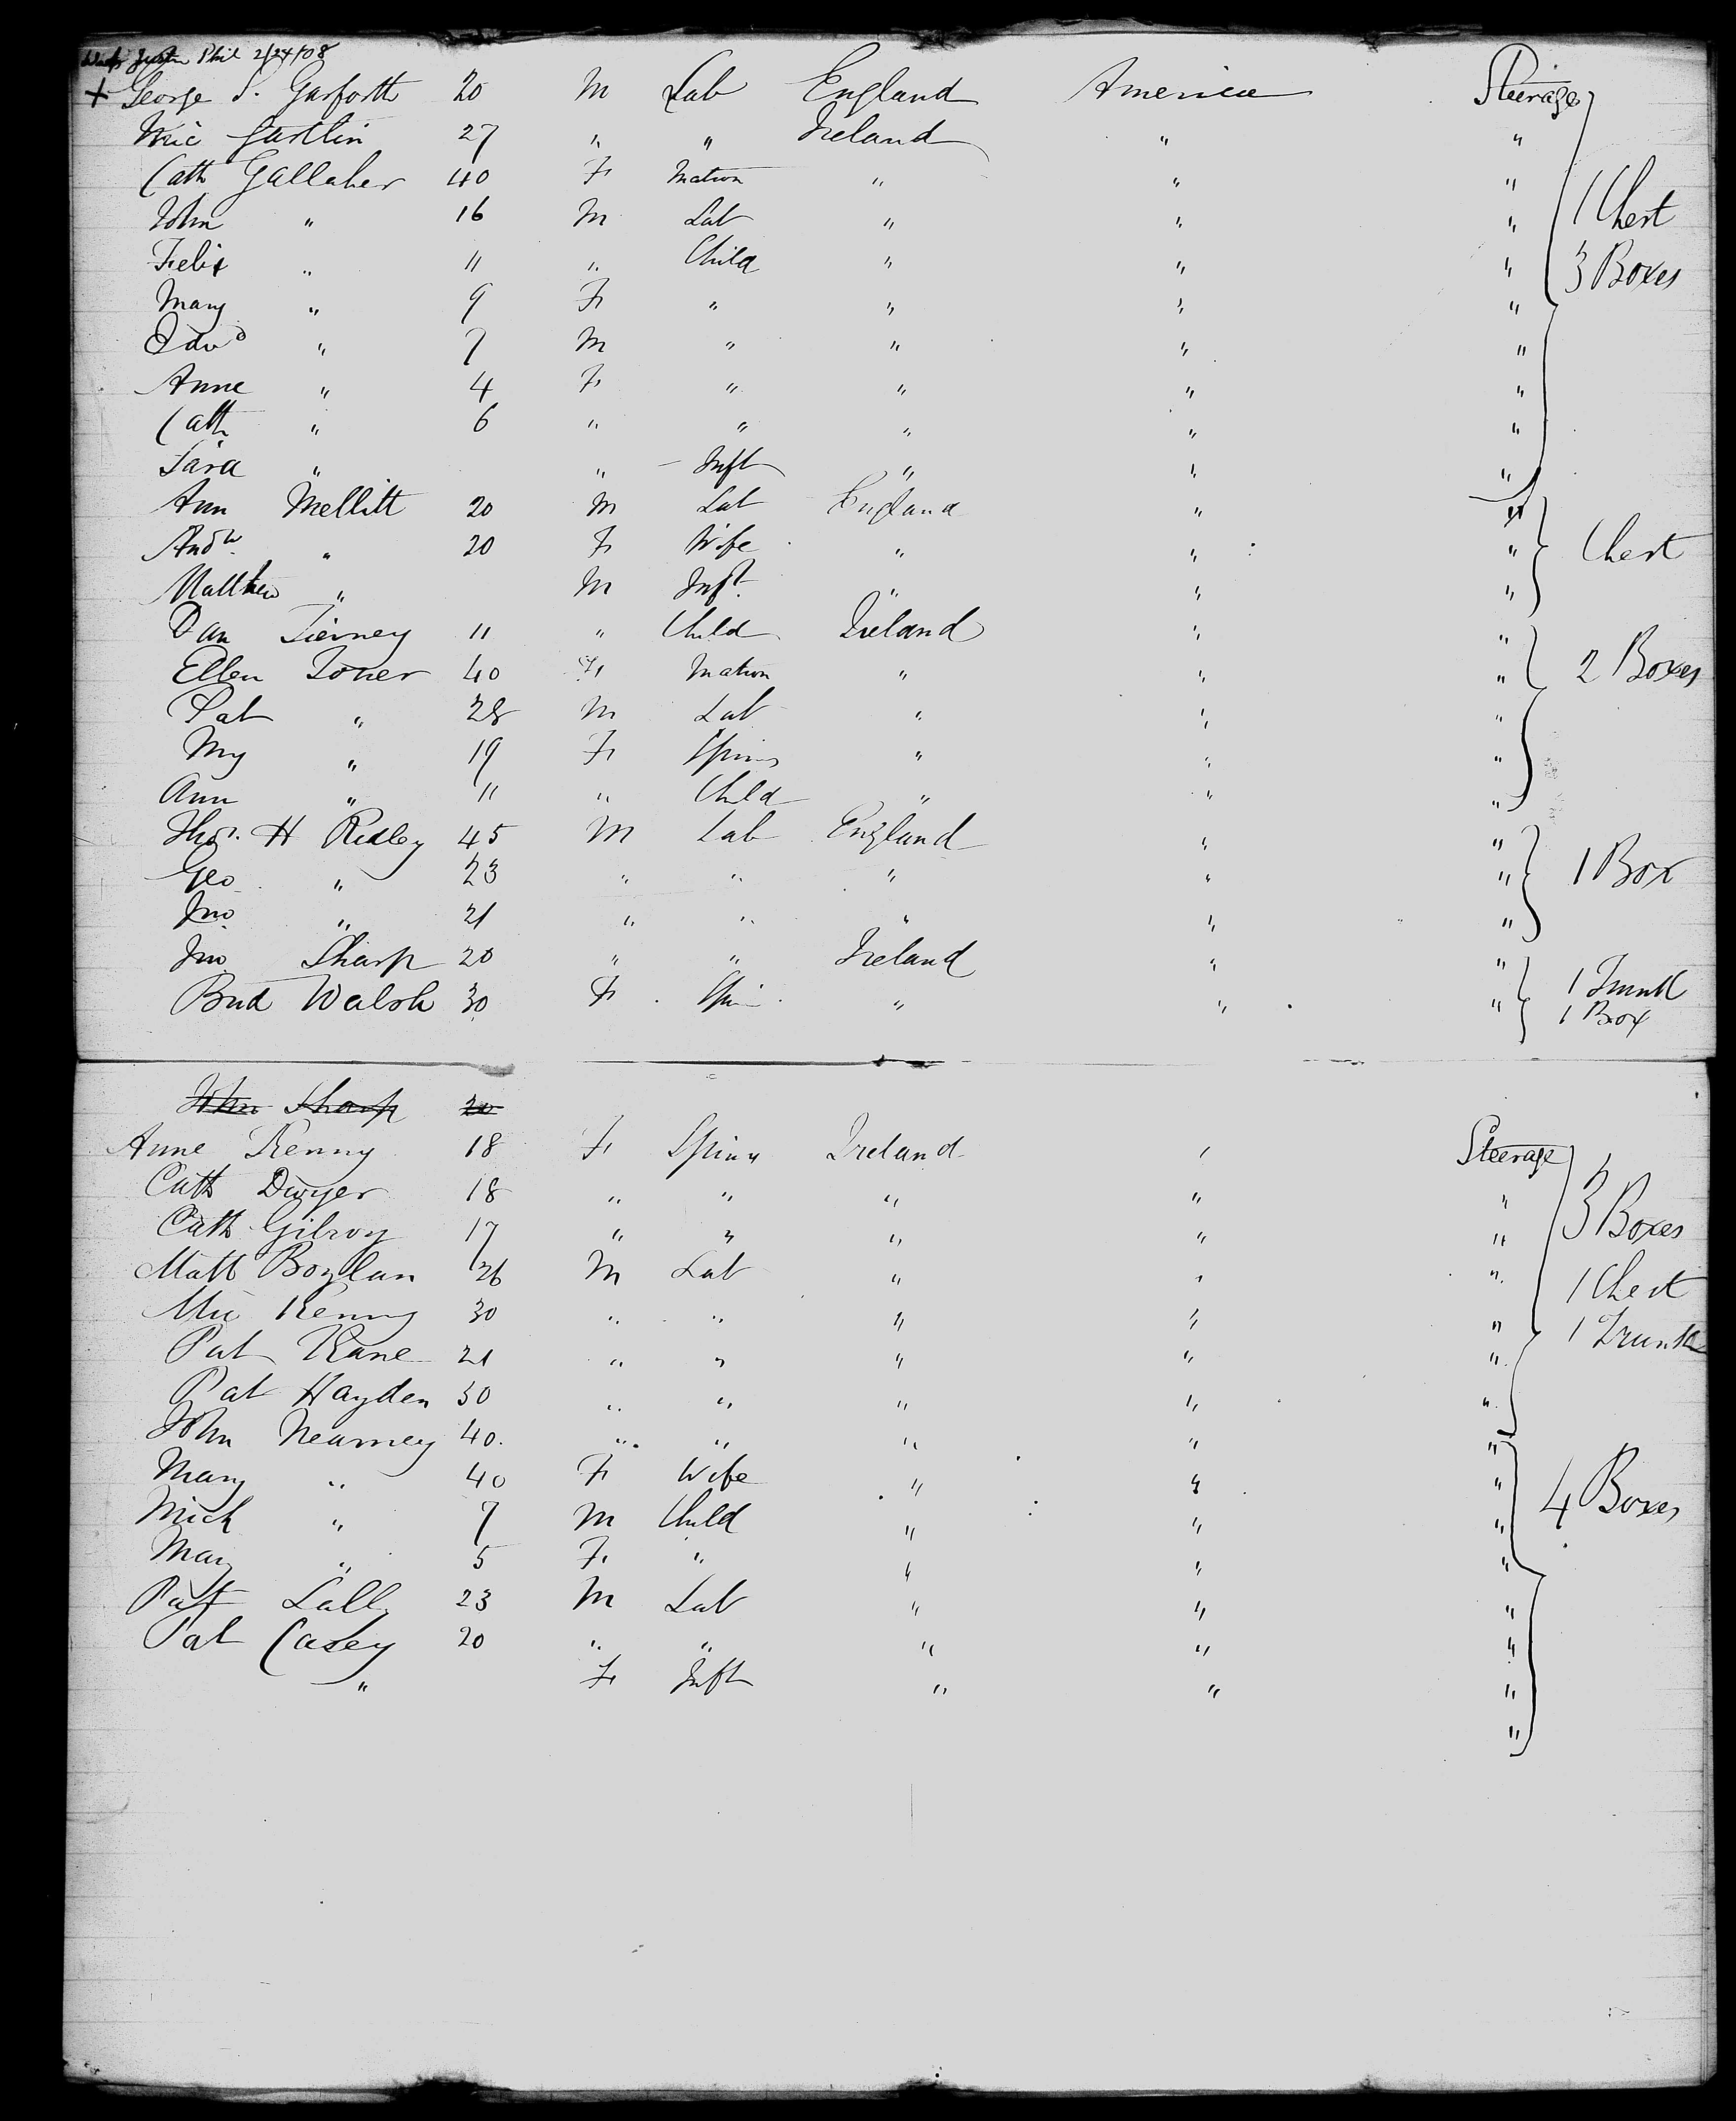 Phil 2/24/08
+ George S. Garforth 20 M Lab England America Steerage
Mic Gartlin 27 " " Ireland " "
Cath Gallaher 40 F Matron " " "
John " 16 M Lab " " " 1 Chest
Felix " 11 " Child " " " 3 Boxes
Mary " 9 F " " " "
Edwd " 7 M " " " "
Anne " 4 F " " " "
Cath " 6 " " " " "
Sara " " Inft " " "
Ann Mellitt 20 M Lab England " "
Andw " 20 F Wife " " " Chest
Matthew " M Inft " " "
Dan Tierney 11 " Child Ireland " "
Ellen Toner 40 F Matron " " " 2 Boxes
Pat " 28 M Lab " " "
My " 19 F Spins " " "
Ann " 11 " Child " " "
Thos. H Ridley 45 M Lab England " "
Geo " 23 " " " " " 1 Box
Jno " 21 " " " " "
Jno Sharp 20 " " Ireland " " 1 Trunk
Brid Walsh 30 F Spin " " " 1 Box
John Sharp 20
Anne Kenny 18 F Spins Ireland " Steerage
Cath Dwyer 18 " " " " "
Cath Gilroy 17 " " " " " 3 Boxes
Matt Boylan 26 M Lab " " " 1 Chest
Mic Kenny 30 " " " " " 1 Trunk
Pat Kane 21 " " " " "
Pat Hayden 30 " " " " "
John Nearney 40. " " " " "
Mary " 40 F Wife " " "
Mick " 7 M Child " " " 4 Boxes
Mary " 5 F " " " "
Pat Lally 23 M Lab " " "
Pat Casey 20 " " " " "
" F Inft " " "
"